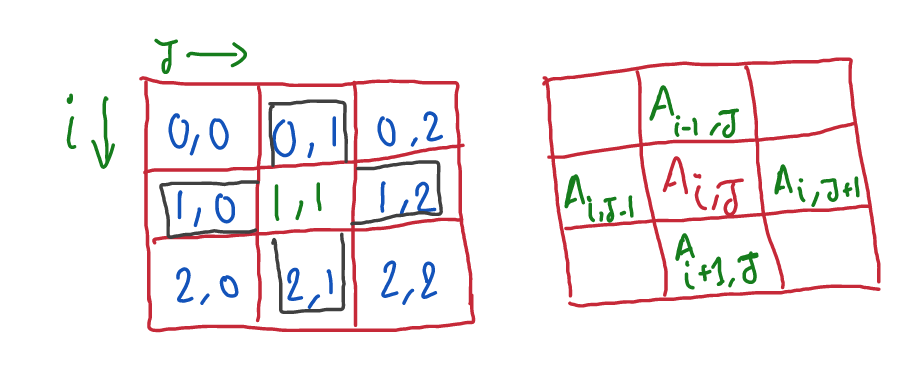 J →
i ↓
0,0 0,1 0,2
1,0 1,1 1,2
2,0 2,1 2,2
A i-1,J
A i,J-1 A i,J A i,J+1
A i+1,J